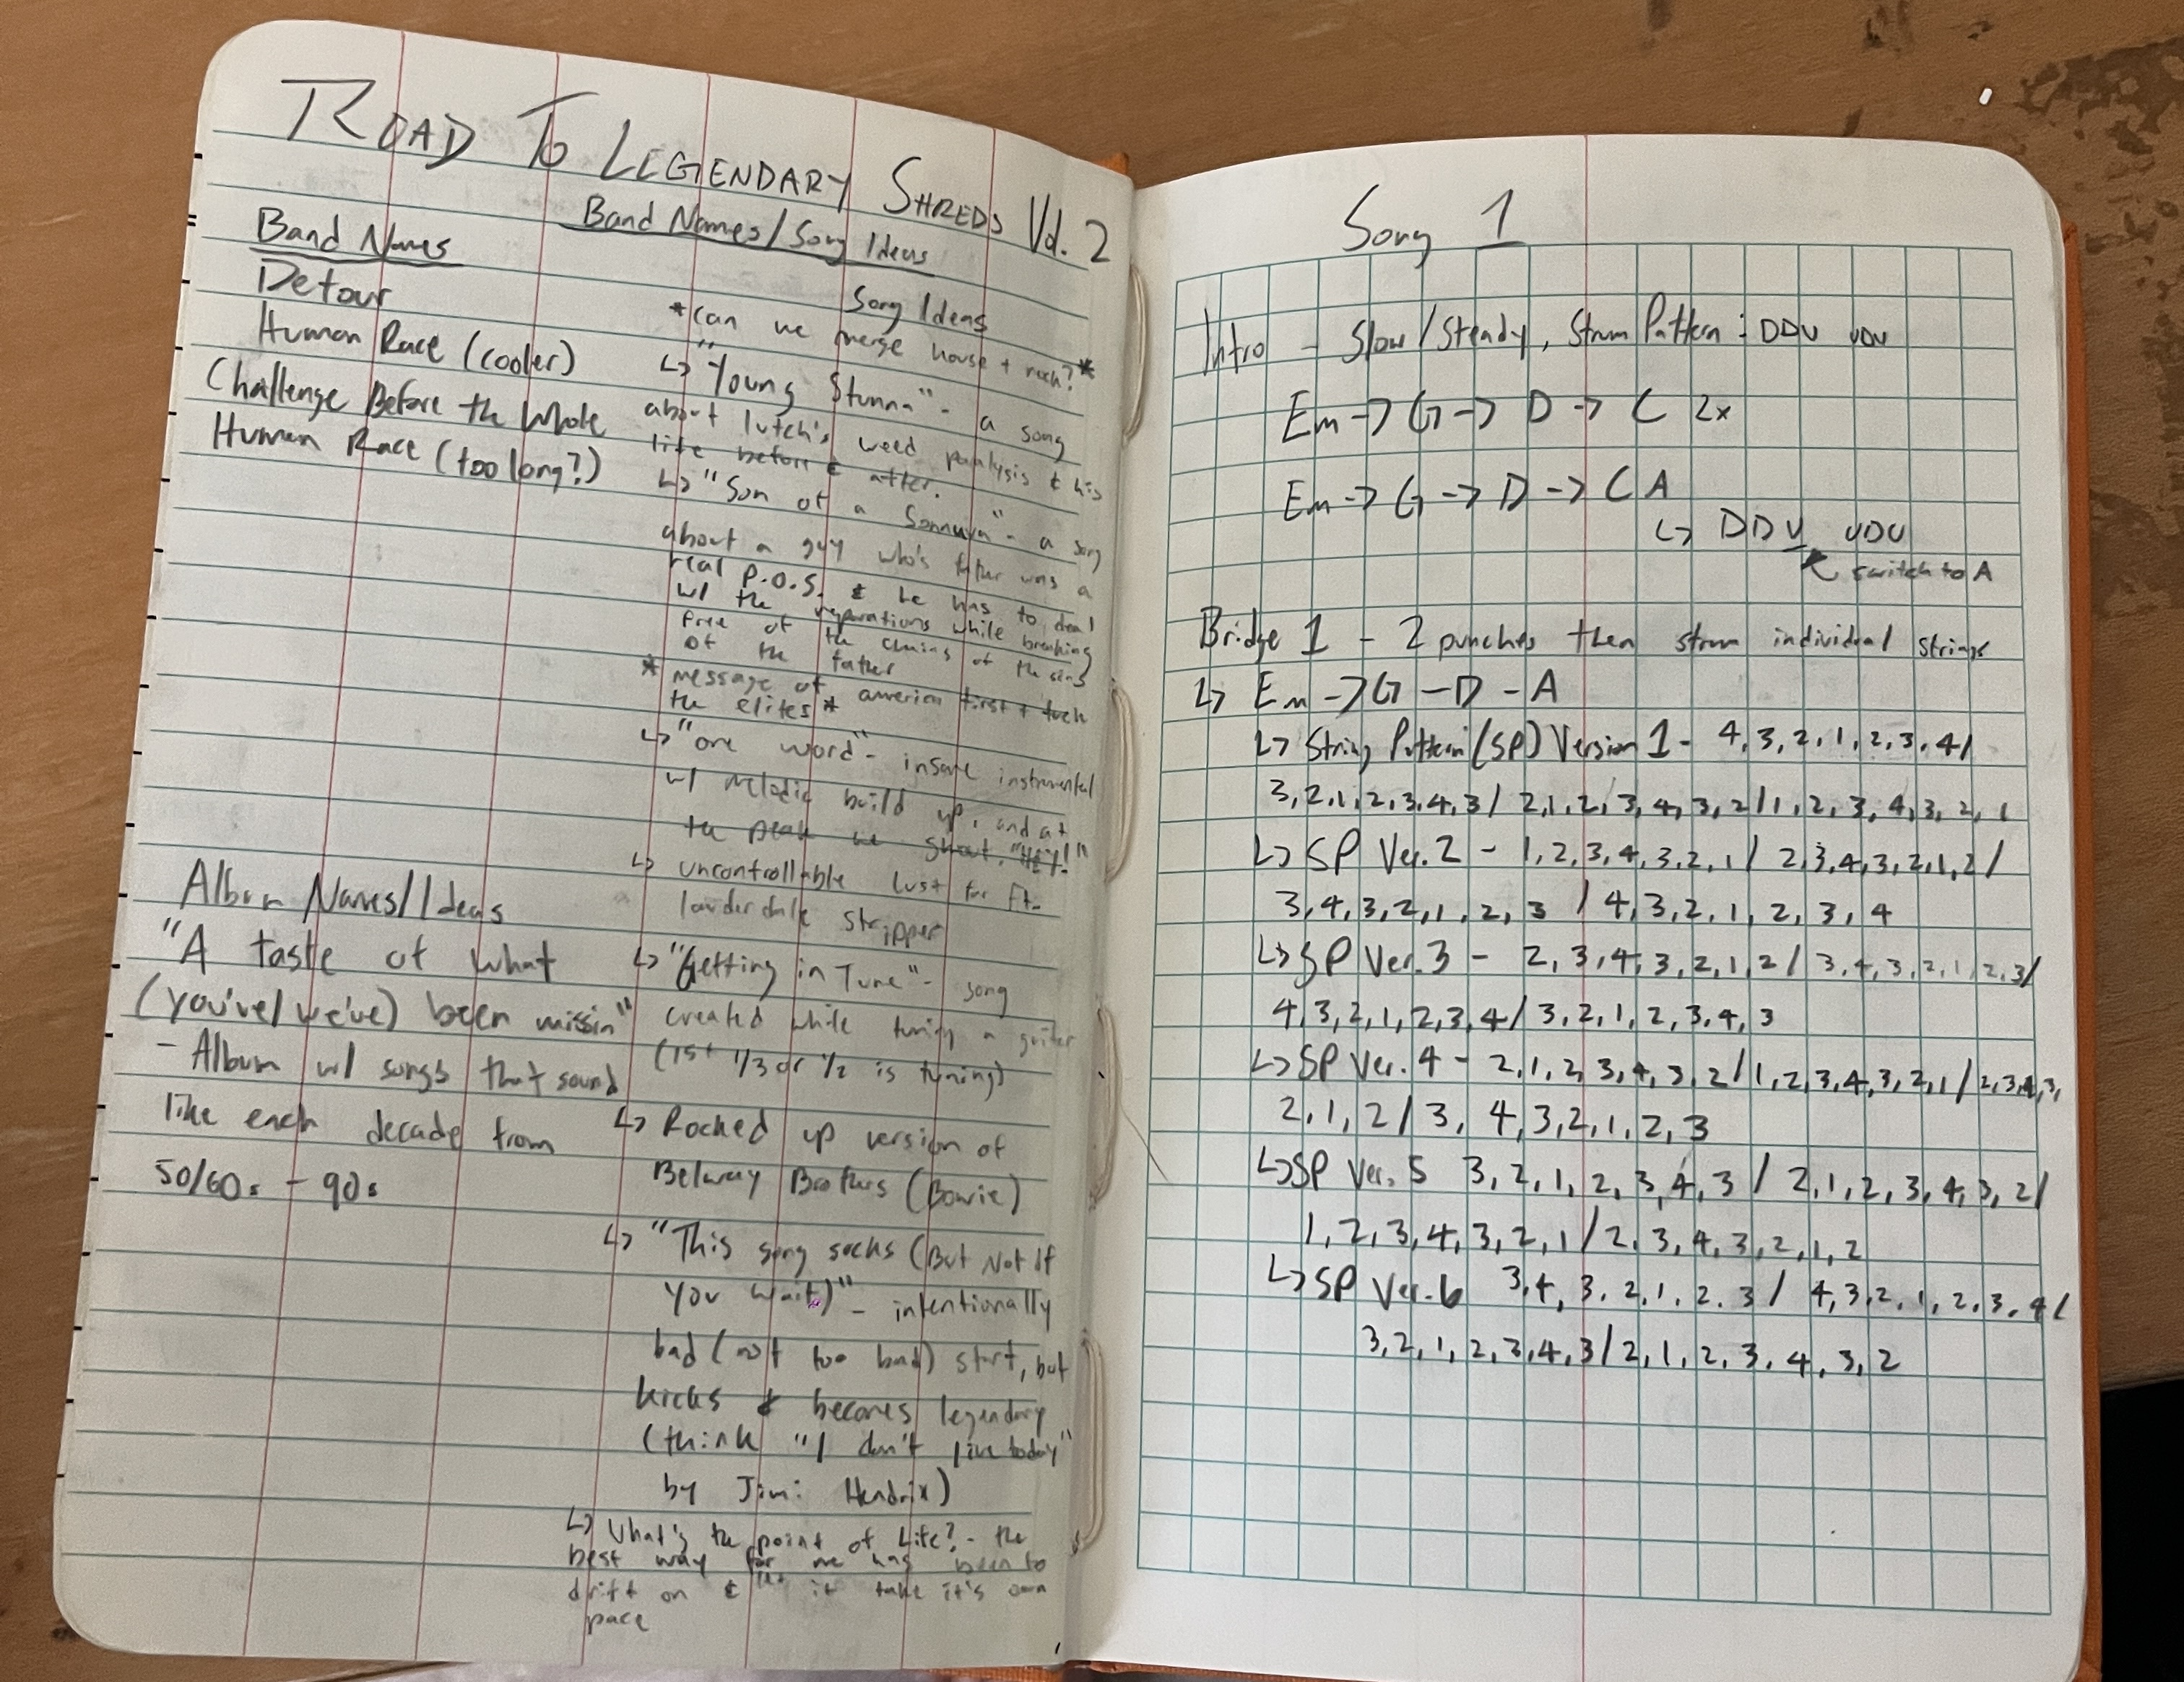 ROAD TO LEGENDARY SHREDS Vol. 2
Band Names/Song Ideas
Band Names
Detour
Human Race (cooler)
Challenge Before the Whole
Human Race (too long?)
Album Names/Ideas
"A taste of what
(you've/we've) been missin"
- Album w/ songs that sound
like each decade from
50/60s - 90s
Song Ideas
*can we merge house + rock?*
↳ "Young Stunna" - a song
about lutch's weed paralysis & his
life before & after.
↳ "Son of a Sonnuva" - a song
about a guy who's father was a
real P.O.S. & he has to deal
w/ the reparations while breaking
free of the chains of the sins
of the father
* message of america first + fuck
the elites *
↳ "one word" - insane instrumental
w/ melodic build up, and at
the peak we shout, "HEY!"
↳ uncontrollable lust for Ft.
lauderdale stripper
↳ "Getting in Tune" - song
created while tuning a guitar
(1st 1/3 or 1/2 is tuning)
↳ Rocked up version of
Belway Brothers (Bowie)
↳ "This song sucks (But Not If
You Wait)" - intentionally
bad (not too bad) start, but
kicks & becomes legendary
(think "I don't live today"
by Jimi Hendrix)
↳ What's the point of Life? - the
best way for me has been to
drift on & let it take it's own
pace
Song 1
Intro - Slow/Steady, Strum Pattern: DDU UDU
Em -> G -> D -> C 2x
Em -> G -> D -> C A
↳ DDU UDU
switch to A
Bridge 1 - 2 punches then strum individual strings
↳ Em -> G - D - A
↳ String Pattern (SP) Version 1 - 4,3,2,1,2,3,4/
3,2,1,2,3,4,3/2,1,2,3,4,3,2/1,2,3,4,3,2,1
↳ SP Ver. 2 - 1,2,3,4,3,2,1/2,3,4,3,2,1,2/
3,4,3,2,1,2,3/4,3,2,1,2,3,4
↳ SP Ver. 3 - 2,3,4,3,2,1,2/3,4,3,2,1,2,3/
4,3,2,1,2,3,4/3,2,1,2,3,4,3
↳ SP Ver. 4 - 2,1,2,3,4,3,2/1,2,3,4,3,2,1/2,3,4,3,
2,1,2/3,4,3,2,1,2,3
↳ SP Ver. 5 3,2,1,2,3,4,3/2,1,2,3,4,3,2/
1,2,3,4,3,2,1/2,3,4,3,2,1,2
↳ SP Ver. 6 3,4,3,2,1,2,3/4,3,2,1,2,3,4/
3,2,1,2,3,4,3/2,1,2,3,4,3,2